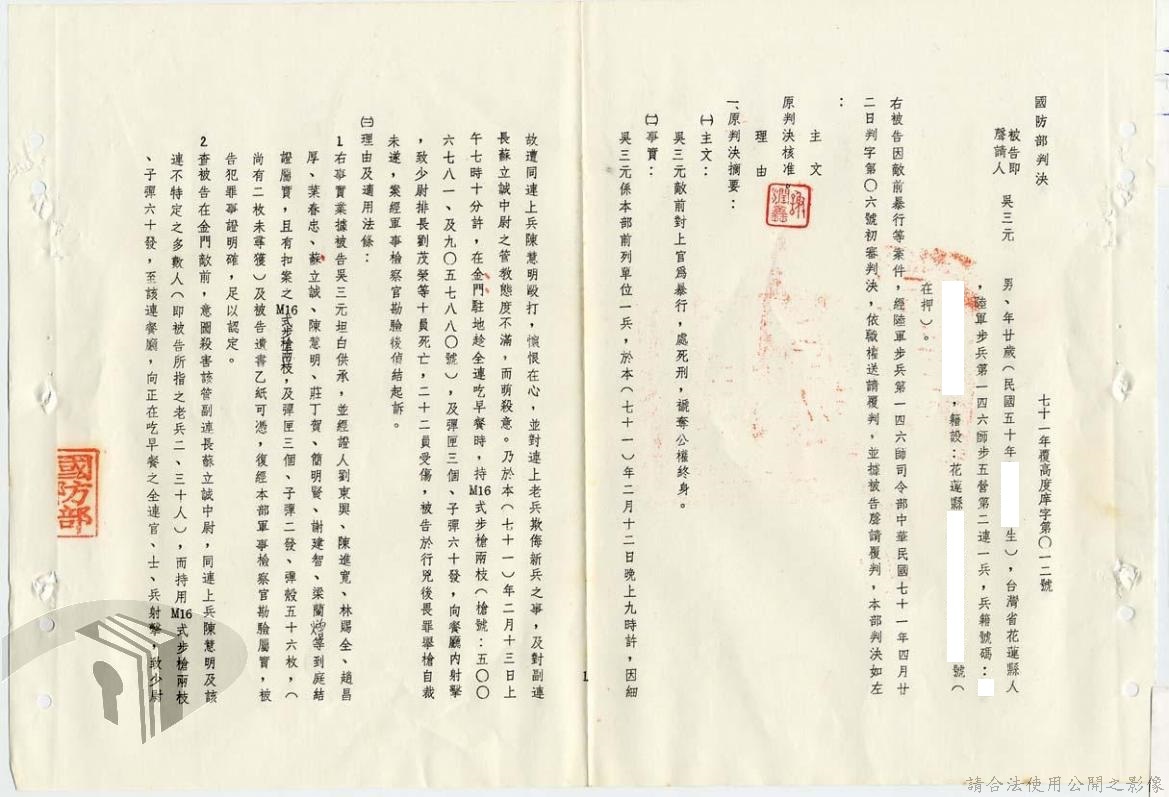 國防部判決
七十一年覆高度庠字第〇一二號
被告即
聲請人
吳三元
男、年廿歲(民國五十年
生),台灣省花蓮縣人
,陸軍步兵第一四六師步五營第二連一兵,兵籍號碼:
,籍設:花蓮縣
號(
在押)。
右被告因敵前暴行等案件,經陸軍步兵第一四六師司令部中華民國七十一年四月廿
二日判字第〇六號初審判決,依職權送請覆判,並據被告聲請覆判,本部判決如左
:
主文
原判決核准。
理由
一、原判決摘要:
㈠主文:
吳三元敵前對上官為暴行,處死刑,褫奪公權終身。
㈡事實:
吳三元係本部前列單位一兵,於本(七十一)年二月十二日晚上九時許,因細
1
故遭同連上兵陳慧明毆打,懷恨在心,並對連上老兵欺侮新兵之事,及對副連
長蘇立誠中尉之管教態度不滿,而萌殺意。乃於本(七十一)年二月十三日上
午七時十分許,在金門駐地趁全連吃早餐時,持M16式步槍兩枝(槍號:五〇〇
六七八一、及九〇五七八八〇號),及彈匣三個、子彈六十發,向餐廳內射擊
,致少尉排長劉茂榮等十員死亡,二十二員受傷,被告於行兇後畏罪舉槍自裁
未遂,案經軍事檢察官勘驗後偵結起訴。
㈢理由及適用法條:
1右事實業據被告吳三元坦白供承,並經證人劉東興、陳進寬、林賜全、趙昌
厚、葉春忠、蘇立誠、陳慧明、莊丁賀、簡明賢、謝建智、梁蘭等到庭結
證屬實,且有扣案之M16式步槍兩枝,及彈匣三個、子彈二發、彈殼五十六枚,(
尚有二枚未尋獲)及被告遺書乙紙可憑,復經本部軍事檢察官勘驗屬實,被
告犯罪事證明確,足以認定。
2查被告在金門敵前,意圖殺害該管副連長蘇立誠中尉,同連上兵陳慧明及該
連不特定之多數人(即被告所指之老兵二、三十人),而持用M16式步槍兩枝
、子彈六十發,至該連餐廳,向正在吃早餐之全連官、士、兵射擊,致少尉
國防部
請合法使用公開之影像